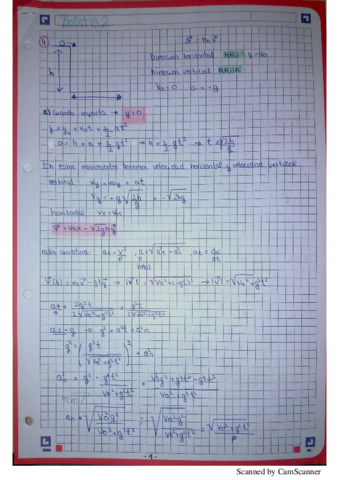 Boletín 2
4
h
P = m·g
Dirección horizontal MRU v=v₀
Dirección vertical MRUA
v₀=0 a=-g
a) Cuando impacta → y=0
y = y₀ + v₀t + ½at²
0 = h + 0 + ½gt² → h = ½gt² → t = √2h/g
En estos movimientos tenemos velocidad horizontal y velocidad vertical
vertical vy = v₀y + at
vy = -g√2h/g = -√2hg
horizontal vx = v₀x
v = v₀x - √2ghy
radio curvatura: an = v²/ρ , a = √at²+an² , at = dv/dt
total
v(t) = v₀x - gty → |v| = √v₀²+(-gt)² → |v| = √v₀²+g²t²
at = 2g²t/2√v₀²+g²t² = g²t/√v₀²+g²t²
a = -g → g² = a²t + a²n
g² = (g²t/√v₀²+g²t²)² + a²n
a²n = g² - g⁴t²/v₀²+g²t² = v₀²g²+g⁴t²-g⁴t²/v₀²+g²t²
an = √v₀²g²/v₀²+g²t² ; √v₀²g²/v₀²+g²t² = √v₀²+g²t²/ρ
-1-
Scanned by CamScanner